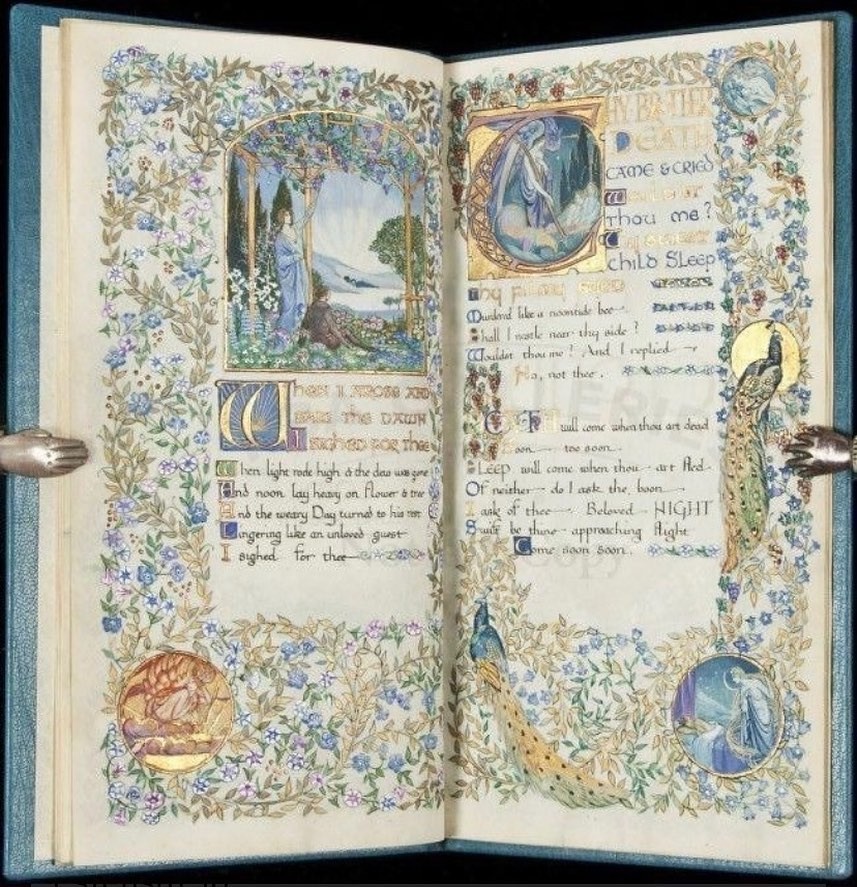 When I arose and
saw the dawn
I sighed for thee
When light rode high & the dew was gone
And noon lay heavy on flower & tree
And the weary Day turned to his rest
Lingering like an unloved guest
I sighed for thee
Thy Brother
Death
came & cried
Wouldst
thou me?
Thy sweet
child Sleep
Thy filmy eyed
Murmured like a noontide bee
Shall I nestle near thy side?
Wouldst thou me? And I replied
No, not thee.
Death will come when thou art dead
Soon too soon
Sleep will come when thou art fled
Of neither do I ask the boon
I ask of thee Beloved NIGHT
Swift be thine approaching flight
Come soon soon.
Copy